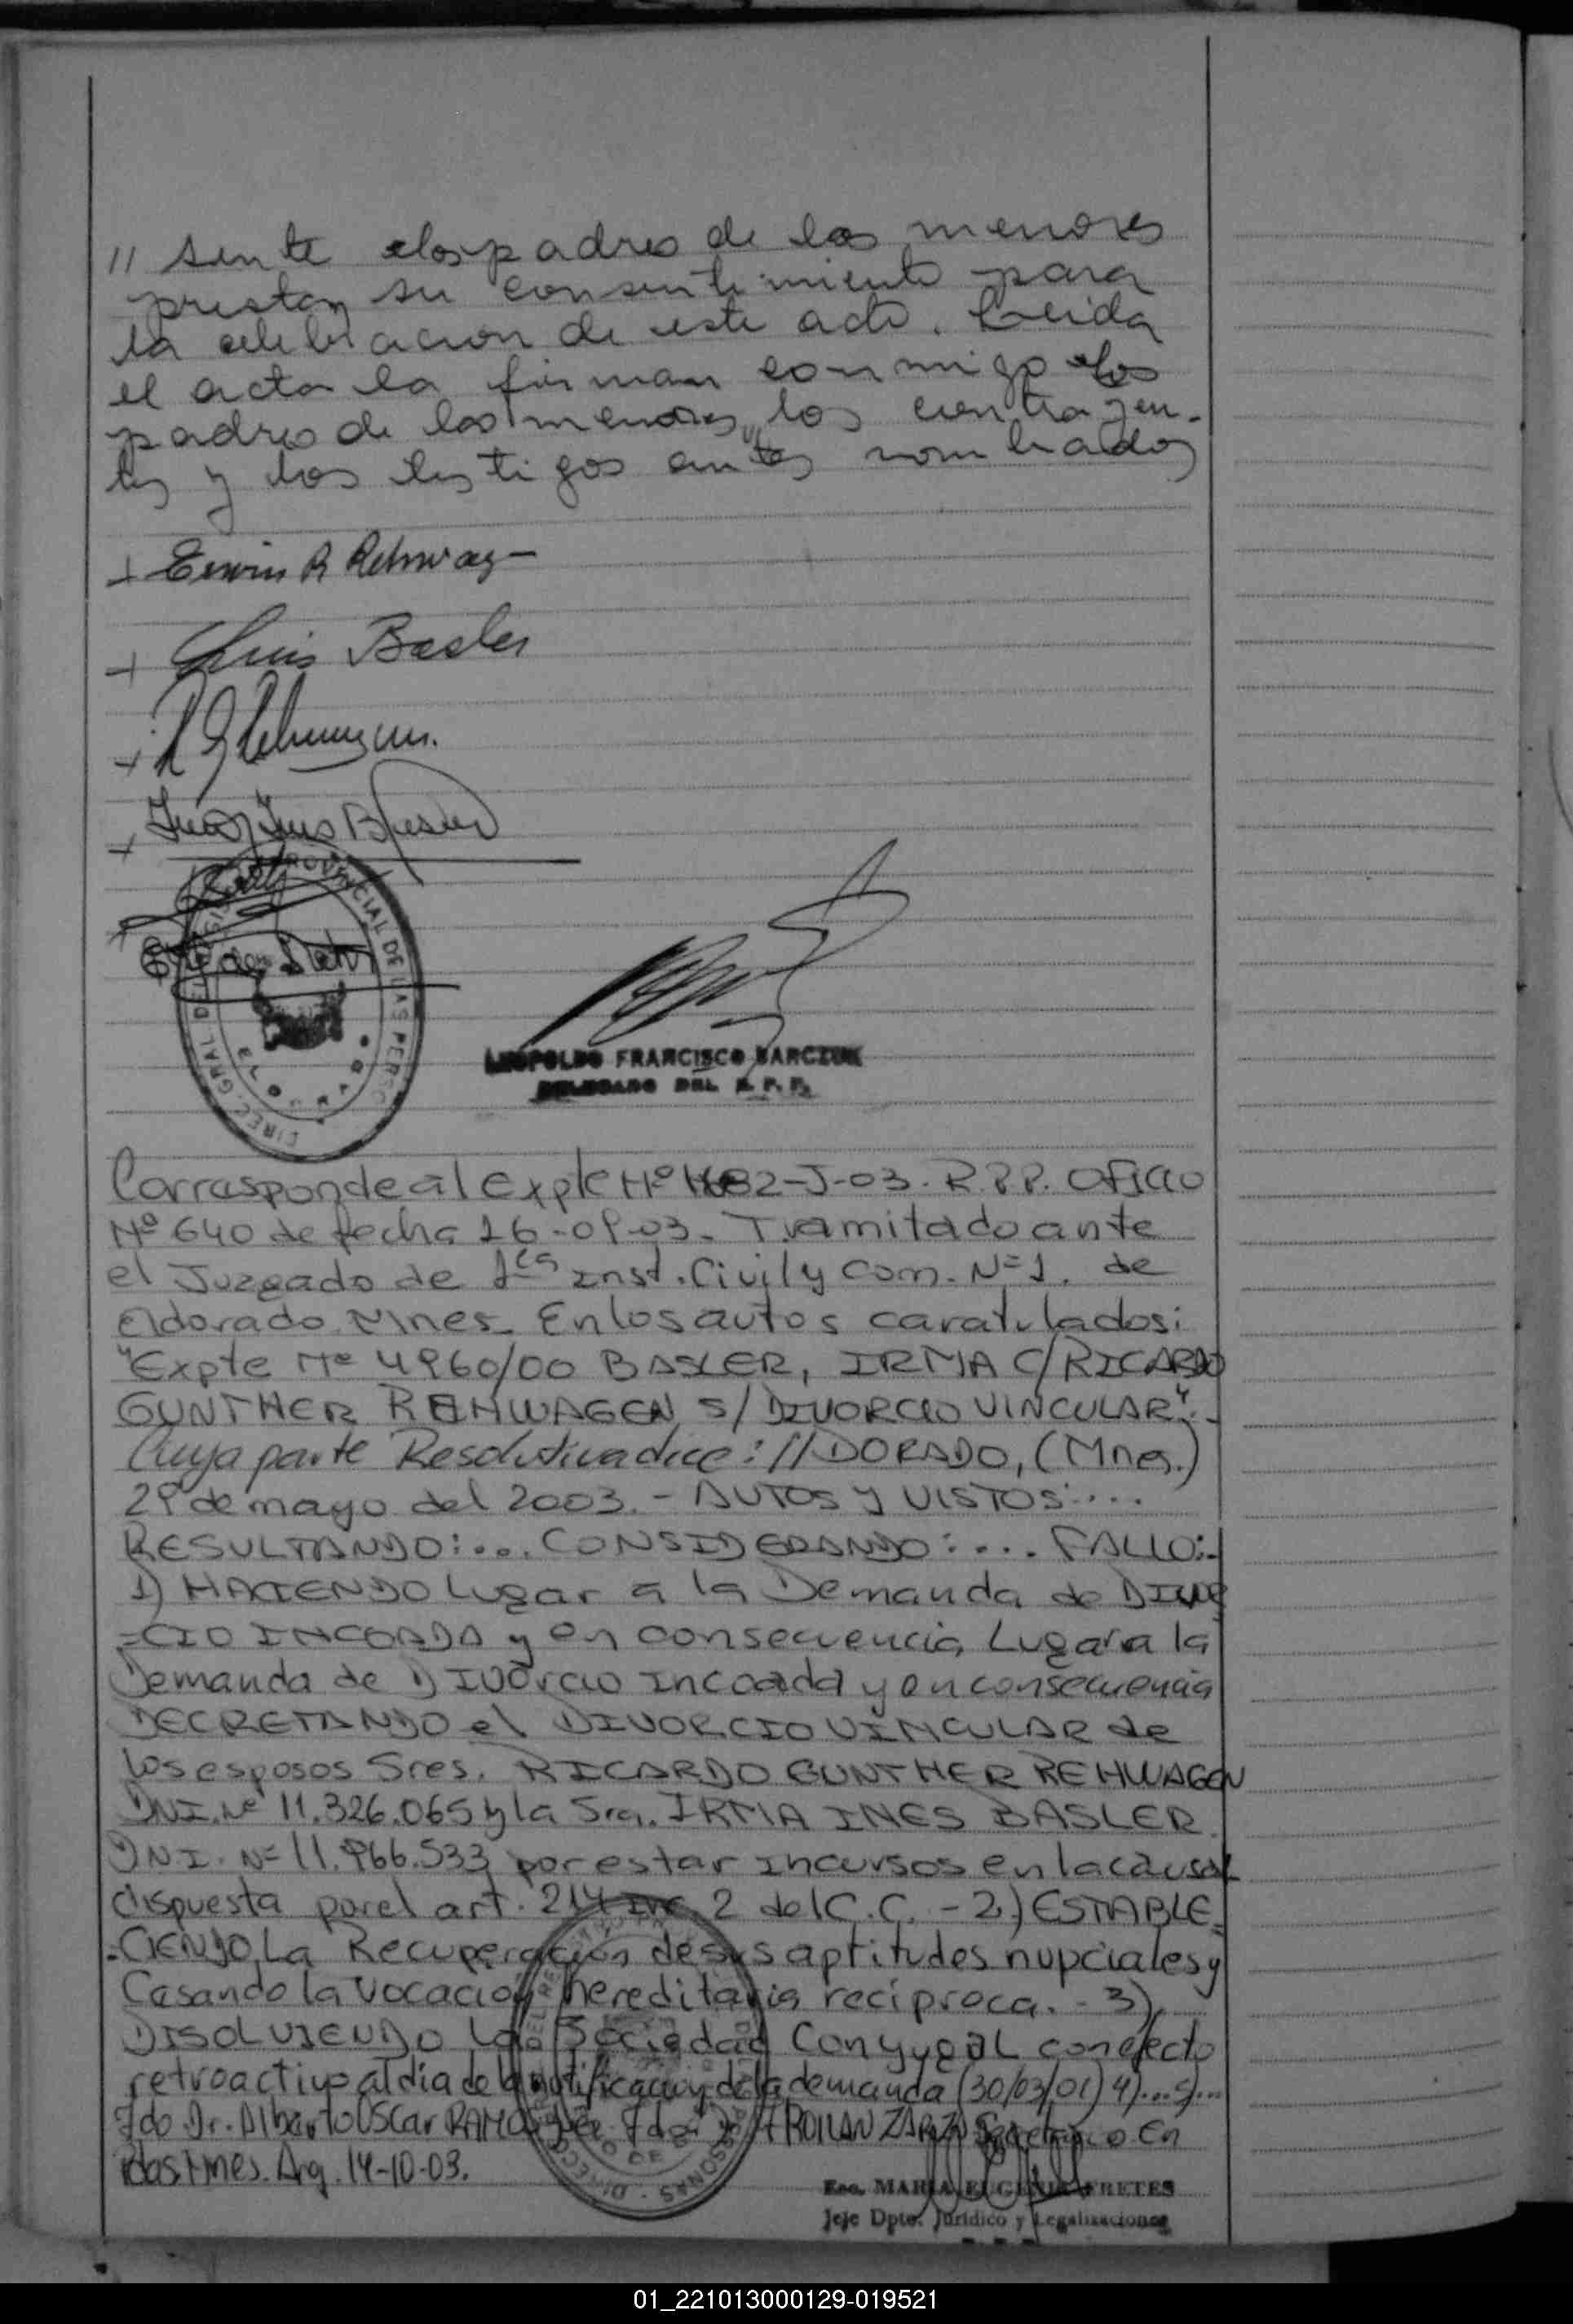 // sente los padres de los menores
prestan su consentimiento para
la celebracion de este acto. Leida
el acta la firman conmigo los
padres de los menores, los contrayen-
tes y los testigos antes nombrados
Erwin R Rehwag
Luis Basler
LEOPOLDO FRANCISCO
DELEGADO DEL R. P. P.
DIREC. GRAL DEL REGIS PROVINCIAL DE LAS PERSO
Corresponde al Expte Nº 82-J-03. R.P.P. Oficio
Nº 640 de fecha 16-09-03. Tramitado ante
el Juzgado de 1ra Inst. Civil y Com. Nº 1. de
Eldorado Mnes. En los autos caratulados:
"Expte Nº 4960/00 BASLER, IRMA C/RICARDO
GUNTHER REHWAGEN S/ DIVORCIO VINCULAR".-
Cuya parte Resolutiva dice: //DORADO, (Mnes.)
29 de mayo del 2003.- AUTOS Y VISTOS:....
RESULTANDO:... CONSIDERANDO:.... FALLO:-
1) HACIENDO Lugar a la Demanda de DIVOR
=CIO INCOADA y en consecuencia, Lugar a la
Demanda de DIVORCIO incoada y en consecuencia
DECRETANDO el DIVORCIO VINCULAR de
los esposos Sres. RICARDO GUNTHER REHWAGEN
DNI. Nº 11.326.065 y la Sra. IRMA INES BASLER
DNI. Nº 11.966.533 por estar incursos en la causal
dispuesta por el art. 214 inc 2 del C.C. - 2) ESTABLE=
=CIENDO La Recuperación de sus aptitudes nupciales y
Cesando la vocación hereditaria recíproca. - 3)
DISOLVIENDO La Sociedad Conyugal con efecto
retroactivo al día de la notificación de la demanda (30/03/01) 4)...5)...
Fdo Dr. Alberto Oscar RAMOS Juez Fdo ROILAN ZARZA Secretario En
Pdas Mnes. Arg. 14-10-03.
Esc. MARIA EUGENIA FRETES
Jefe Dpto. Jurídico y Legalizaciones
01_221013000129-019521